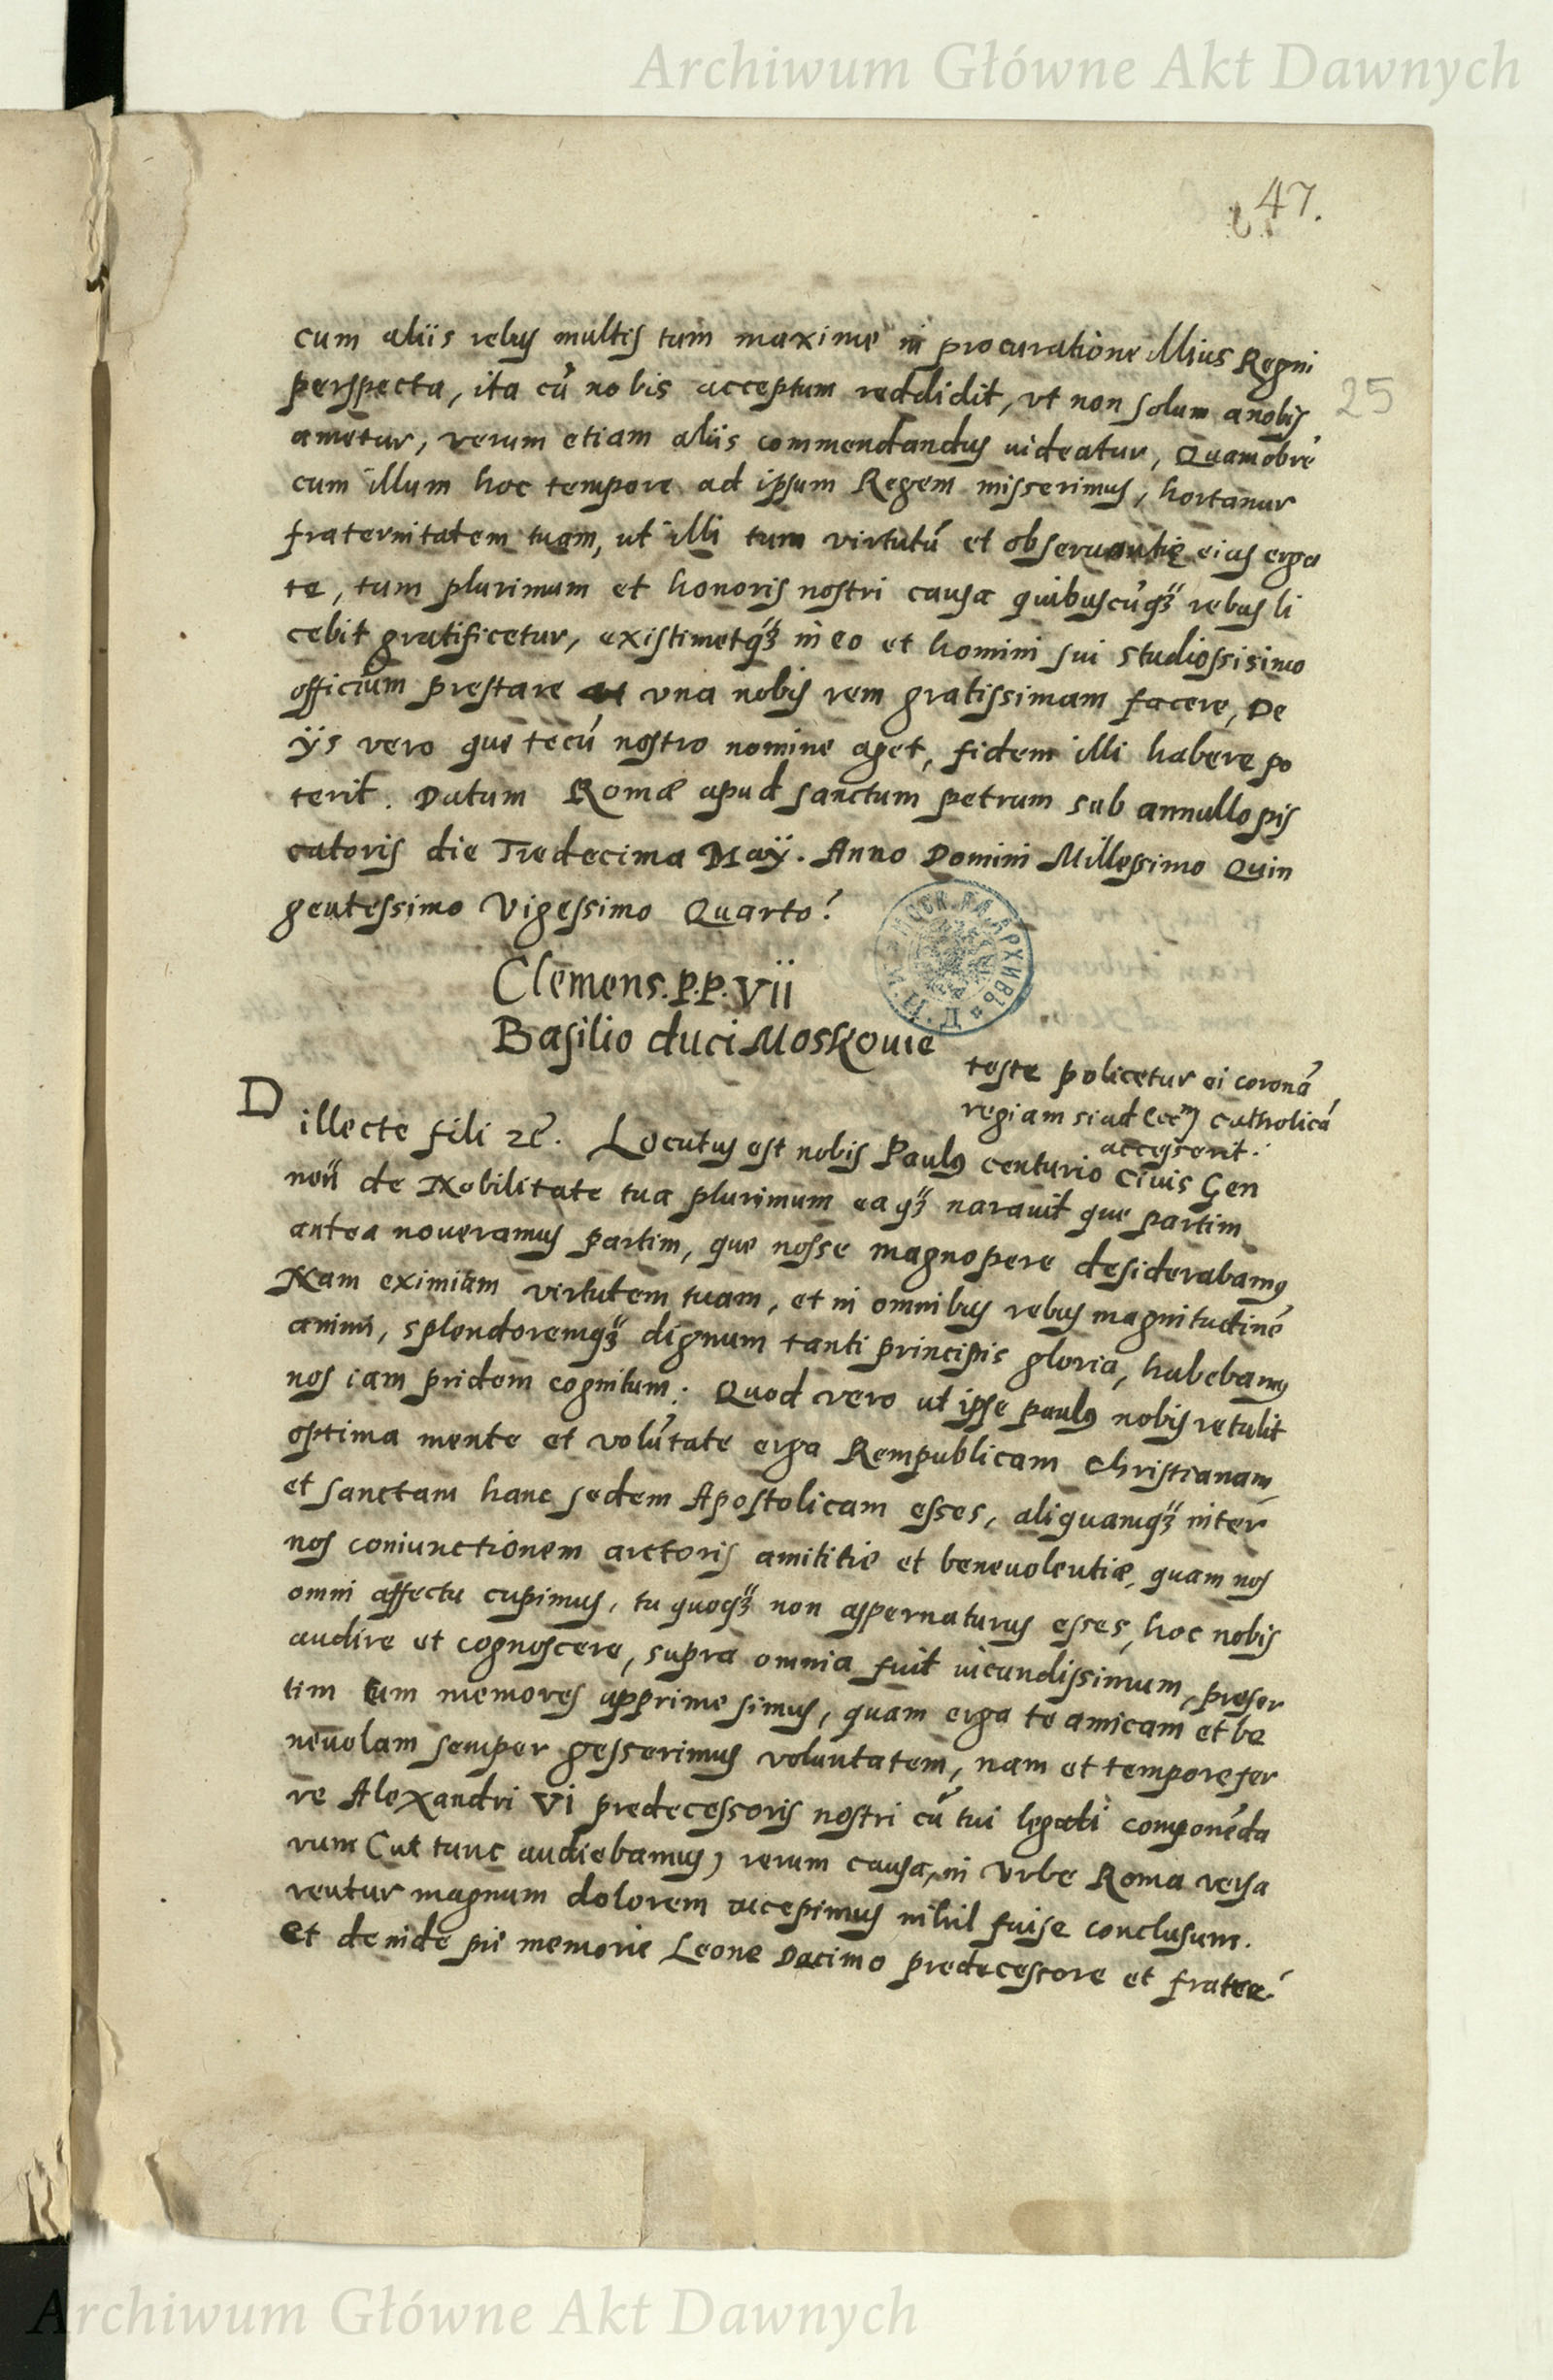 Archiwum Główne Akt Dawnych
47.
25
cum aliis rebus multis tum maxime in procuratione illius Regni
perspecta, ita cū nobis acceptum reddidit, vt non solum a nobis
ametur, verum etiam aliis commendandus uideatur, Quamobrē
cum illum hoc tempore ad ipsum Regem misserimus, hortamur
fraternitatem tuam, ut illi tum virtutū et obseruantię eius erga
te, tum plurimum et honoris nostri causa quibuscūqꝫ rebus li
cebit gratificetur, existimetqꝫ in eo et homini sui studiossisimo
officium prestare et vna nobis rem gratissimam facere, De
ijs vero que tecū nostro nomine aget, fidem illi habere po
terit. Datum Romæ apud sanctum petrum sub annullo pis
catoris die Tredecima Maÿ. Anno Domini Millessimo Quin
gentessimo Vigessimo Quarto.
Clemens.P.P.Vii
Basilio duci Moskouie
teste policetur ei coronā
regiam si ad (ecc) catholicā
accesserit.
Dillecte fili ꝛc̄. Locutus est nobis Paulꝰ centurio Ciuis Gen
neñ de Nobilitate tua plurimum eaqꝫ narauit que partim
antea noueramus partim, que nosse magnopere desiderabamꝰ
Nam eximiam virtutem tuam, et in omnibus rebus magnitudinē
animi, splendoremqꝫ dignum tanti principis gloria, habebamꝰ
nos iam pridem cognitum: Quod vero ut ipse paulꝰ nobis retulit
optima mente et volūtate erga Rempublicam Christianam
et sanctam hanc sedem Apostolicam esses, aliquamqꝫ inter
nos coniunctionem arctoris amititie et beneuolentiæ, quam nos
omni affectu cupimus, tu quoqꝫ non aspernaturus esses, hoc nobis
audire et cognoscere, supra omnia fuit iucundissimum, preser
tim cum memores apprime simus, quam erga te amicam et be
neuolam semper gesserimus voluntatem, nam et tempore fer
re Alexandri VI predecessoris nostri cū tui legati componēda
rum (ut tunc audiebamus) rerum causa, in Vrbe Roma versa
rentur magnum dolorem accepimus nihil fuise conclusum.
Et deinde pie memorie Leone Decimo predecessore et fratre
Archiwum Główne Akt Dawnych